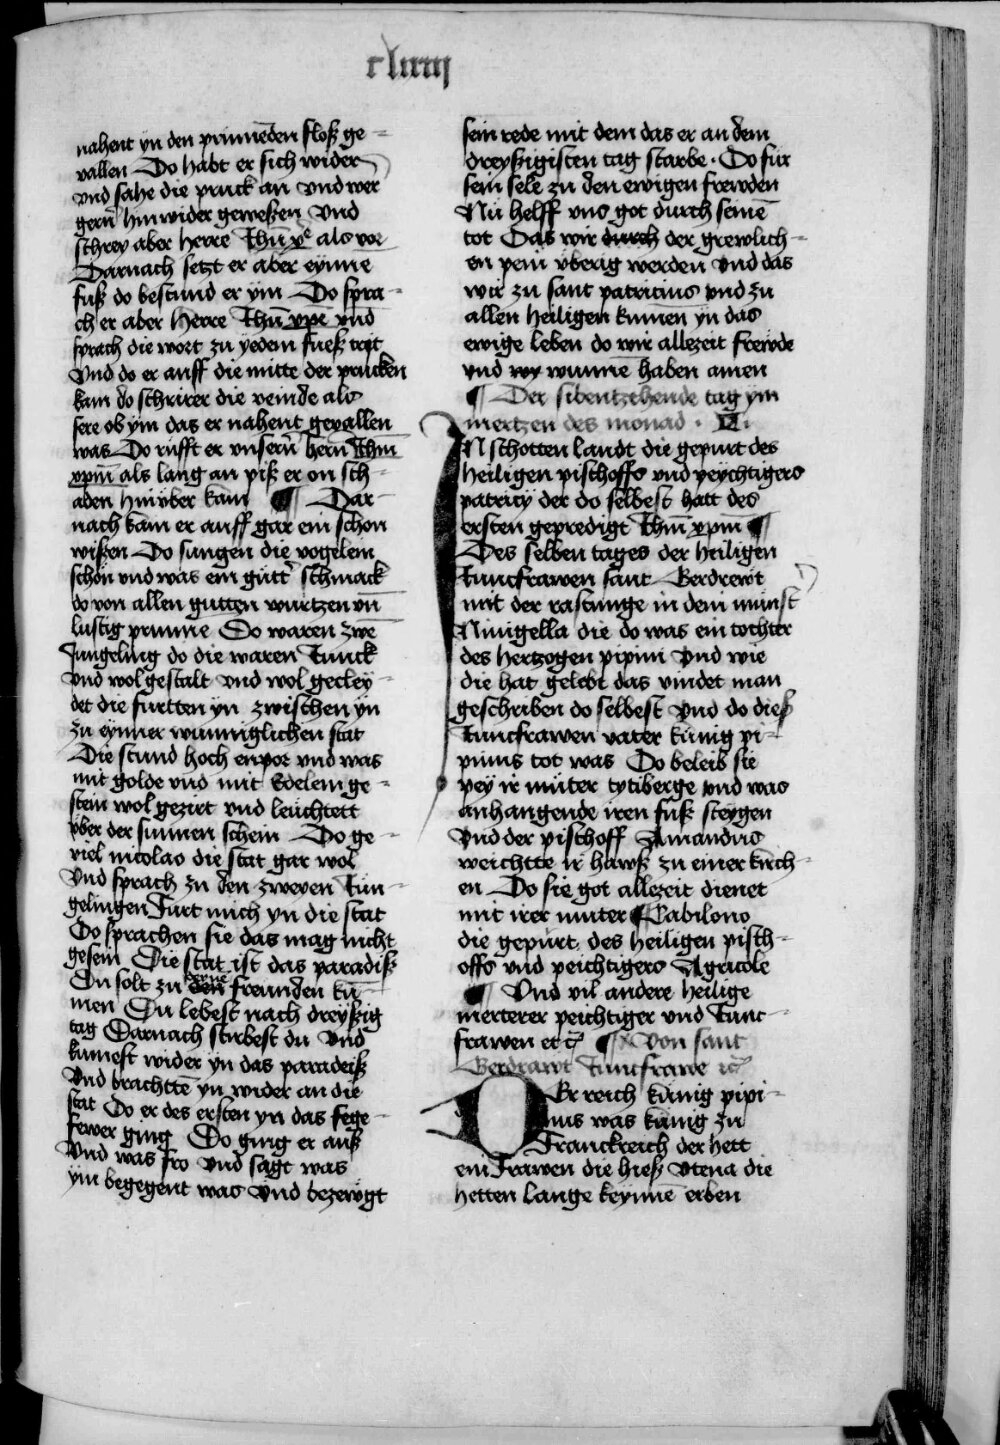 cliiij
nahent yn den prinnēden floß ge-
vallen Do habt er sich wider
vnd sahe die pruck an vnd wer
gern̄ hin wider geweßen Vnd
schrey aber herre Jhū xp̄e als vor
Darnach setzt er aber eynne
fuß do bestund er ym Do spra-
ch er aber herre Jhū xpe vnd
sprach die wort zu yedem fueß trit
Vnd do er auff die mitte der prucken
kam do schrirer die veinde als
sere ob ym das er nahent gevallen
was Do rufft er vnsern̄ hern̄ Jhm̄
xpm̄ als lang an piß er on sch-
aden hin vber kam ¶ Dar-
nach kam er auff gar ein schon
wißen Do sungen die vogelein
schon vnd was ein gutt' schmack
do von allen gutten wurtzen vn̄
lustig prunne Do waren zwē
Jungeling do die waren Junck
vnd wol gestalt vnd wol gecley-
det die furtten yn zwischen yn
zu eynner wunniglichen stat
Die stund hoch enpor vnd was
mit golde vnd mit Edelem ge-
stein wol gezirt vnd leuchtett
vber der sunnen schein Do ge-
viel nicolao die stat gar wol
Vnd sprach zu den zweyen Jun-
gelingen Furt mich yn die stat
Do sprachen sie das mag nicht
gesein Die stat ist das paradiß
Du solt zu den deyne freunden ku-
men Du lebest nach dreyßig
tag Darnach stirbest du Vnd
kumest wider yn das paradeiß
Vnd brachttē yn wider an die
stat Do er des ersten yn das fege-
fewer ging Do ging er auß
Vnd was fro Vnd sagt was
ym begegent was Vnd bezewgt
sein rede mit dem das er an dem
dreyßigisten tag starbe · Do fur
sein sele zu den ewigen frewden
Nu helff vns got durch seinē
tot Das wir durch der grewlich-
en pein vberig werden Vnd das
wir zu sant patricius vnd zu
allen heiligen kumen yn das
ewige leben do wir allezeit frewde
vnd wy wunnē haben amen
¶ Der sibentzehende tag ym
mertzen des monad ·
IN schotten landt die gepurt des
heiligen pischoffs vnd peychtigers
patricy der do selbest hatt des
ersten gepredigt Jhm̄ xpm̄ ¶
Des selben tages der heiligen
Junckfrawen sant Gerdrewt
mit der rastunge in dem munst'
Niuigella die do was ein tochter
des hertzogen pipini Vnd wie
die hat gelebt das vindet man
geschriben do selbest Vnd do dieß
Junckfrawen vater kunig pi-
pinus tot was Do beleib sie
pey ir muter ytiberge vnd was
anhangende iren fuß steygen
Vnd der pischoff Amandus
weichtte ir hawß zu einer kirch-
en Do sie got allezeit dienet
mit irer muter ¶ Babilono
die gepurt des heiligen pisch-
offs vnd peichtigers Agricole
¶ Vnd vil andere heilige
merterer peichtiger vnd Junc-
frawen etc̄ ¶ Von sant
Gerdrawt Juncfrawe etc̄
DEr reich kunig pipi-
nus was kunig zu
Franckreich der hett
ein Frawen die hieß Vtena die
hetten lange keynnē erben